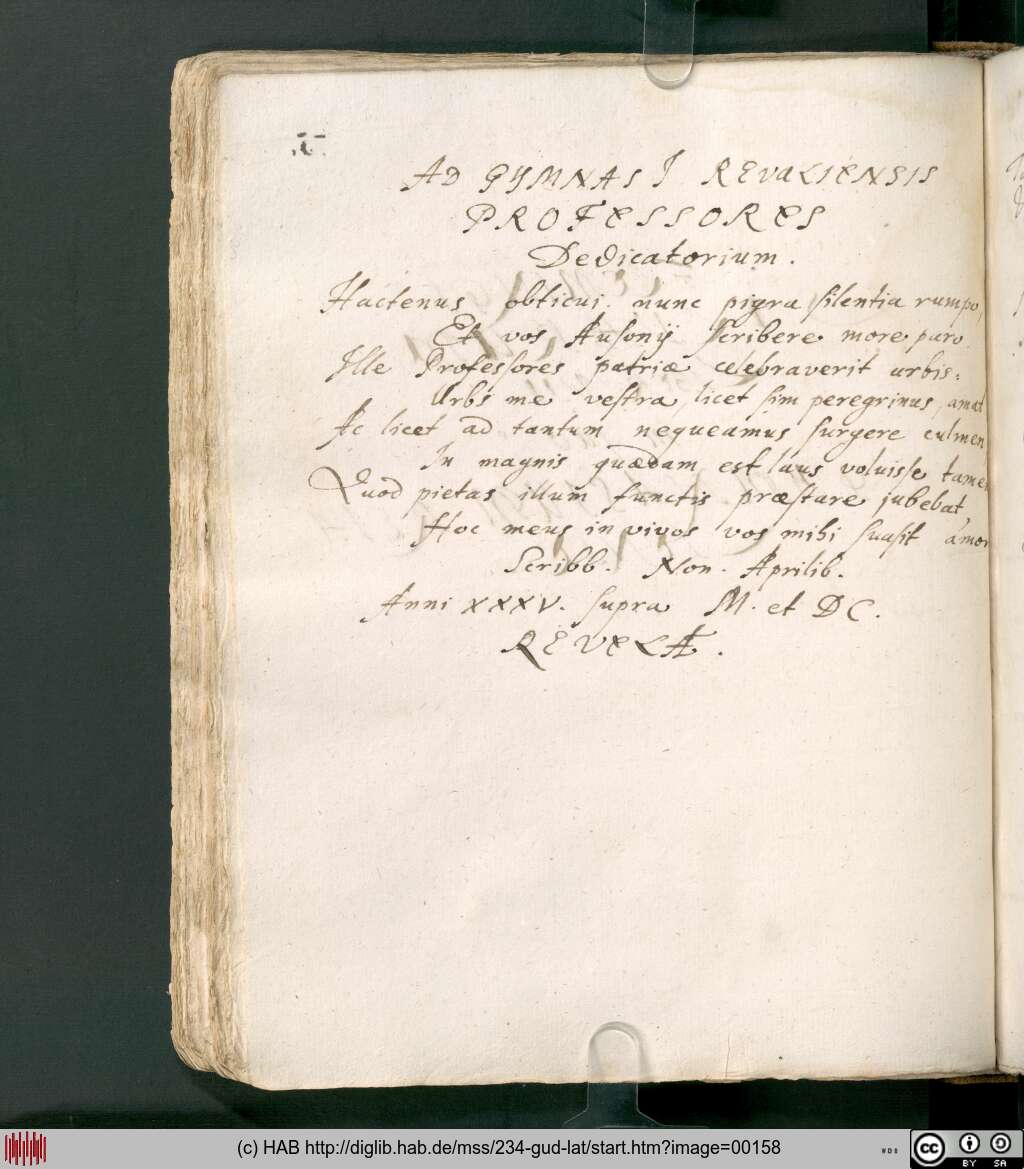 AD GYMNASI REVALIENSIS
PROFESSORES
Dedicatorium.
Hactenus obticui, nunc pigra silentia rumpo,
Et vos Ausonij scribere more paro.
Ille Professores patriæ celebraverit urbis:
Urbs me vestra, licet sim peregrinus, amat
Ac licet ad tantum nequeamus surgere culmen
In magnis quædam est laus voluisse tamen
Quod pietas illum functis præstare jubebat,
Hoc meus in vivos vos mihi suasit amor
Scribb. Non. Aprilib.
Anni XXXV. supra M. et DC.
REVELÆ.
(c) HAB http://diglib.hab.de/mss/234-gud-lat/start.htm?image=00158
cc BY SA